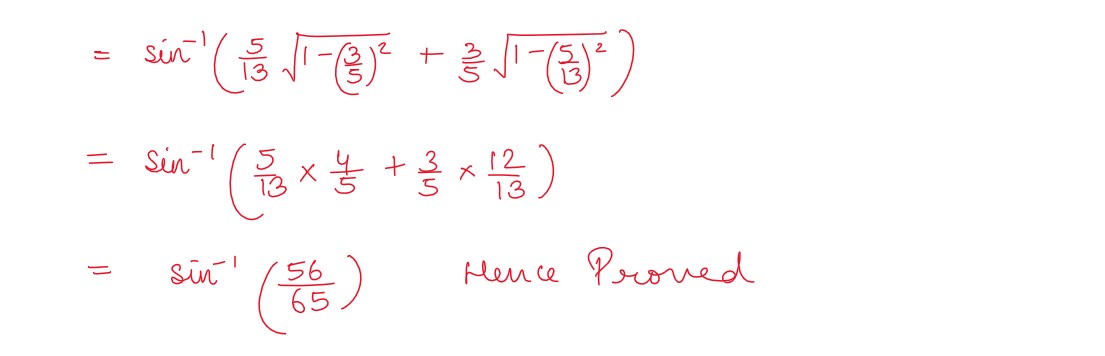 = sin⁻¹(5/13 √(1-(3/5)²) + 3/5 √(1-(5/13)²))
= sin⁻¹(5/13 × 4/5 + 3/5 × 12/13)
= sin⁻¹(56/65) Hence Proved